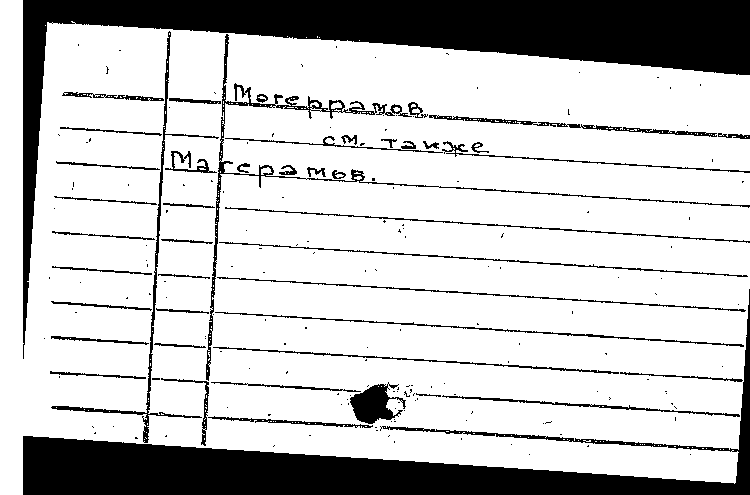 Могеррамов
см. также
Магерамов.